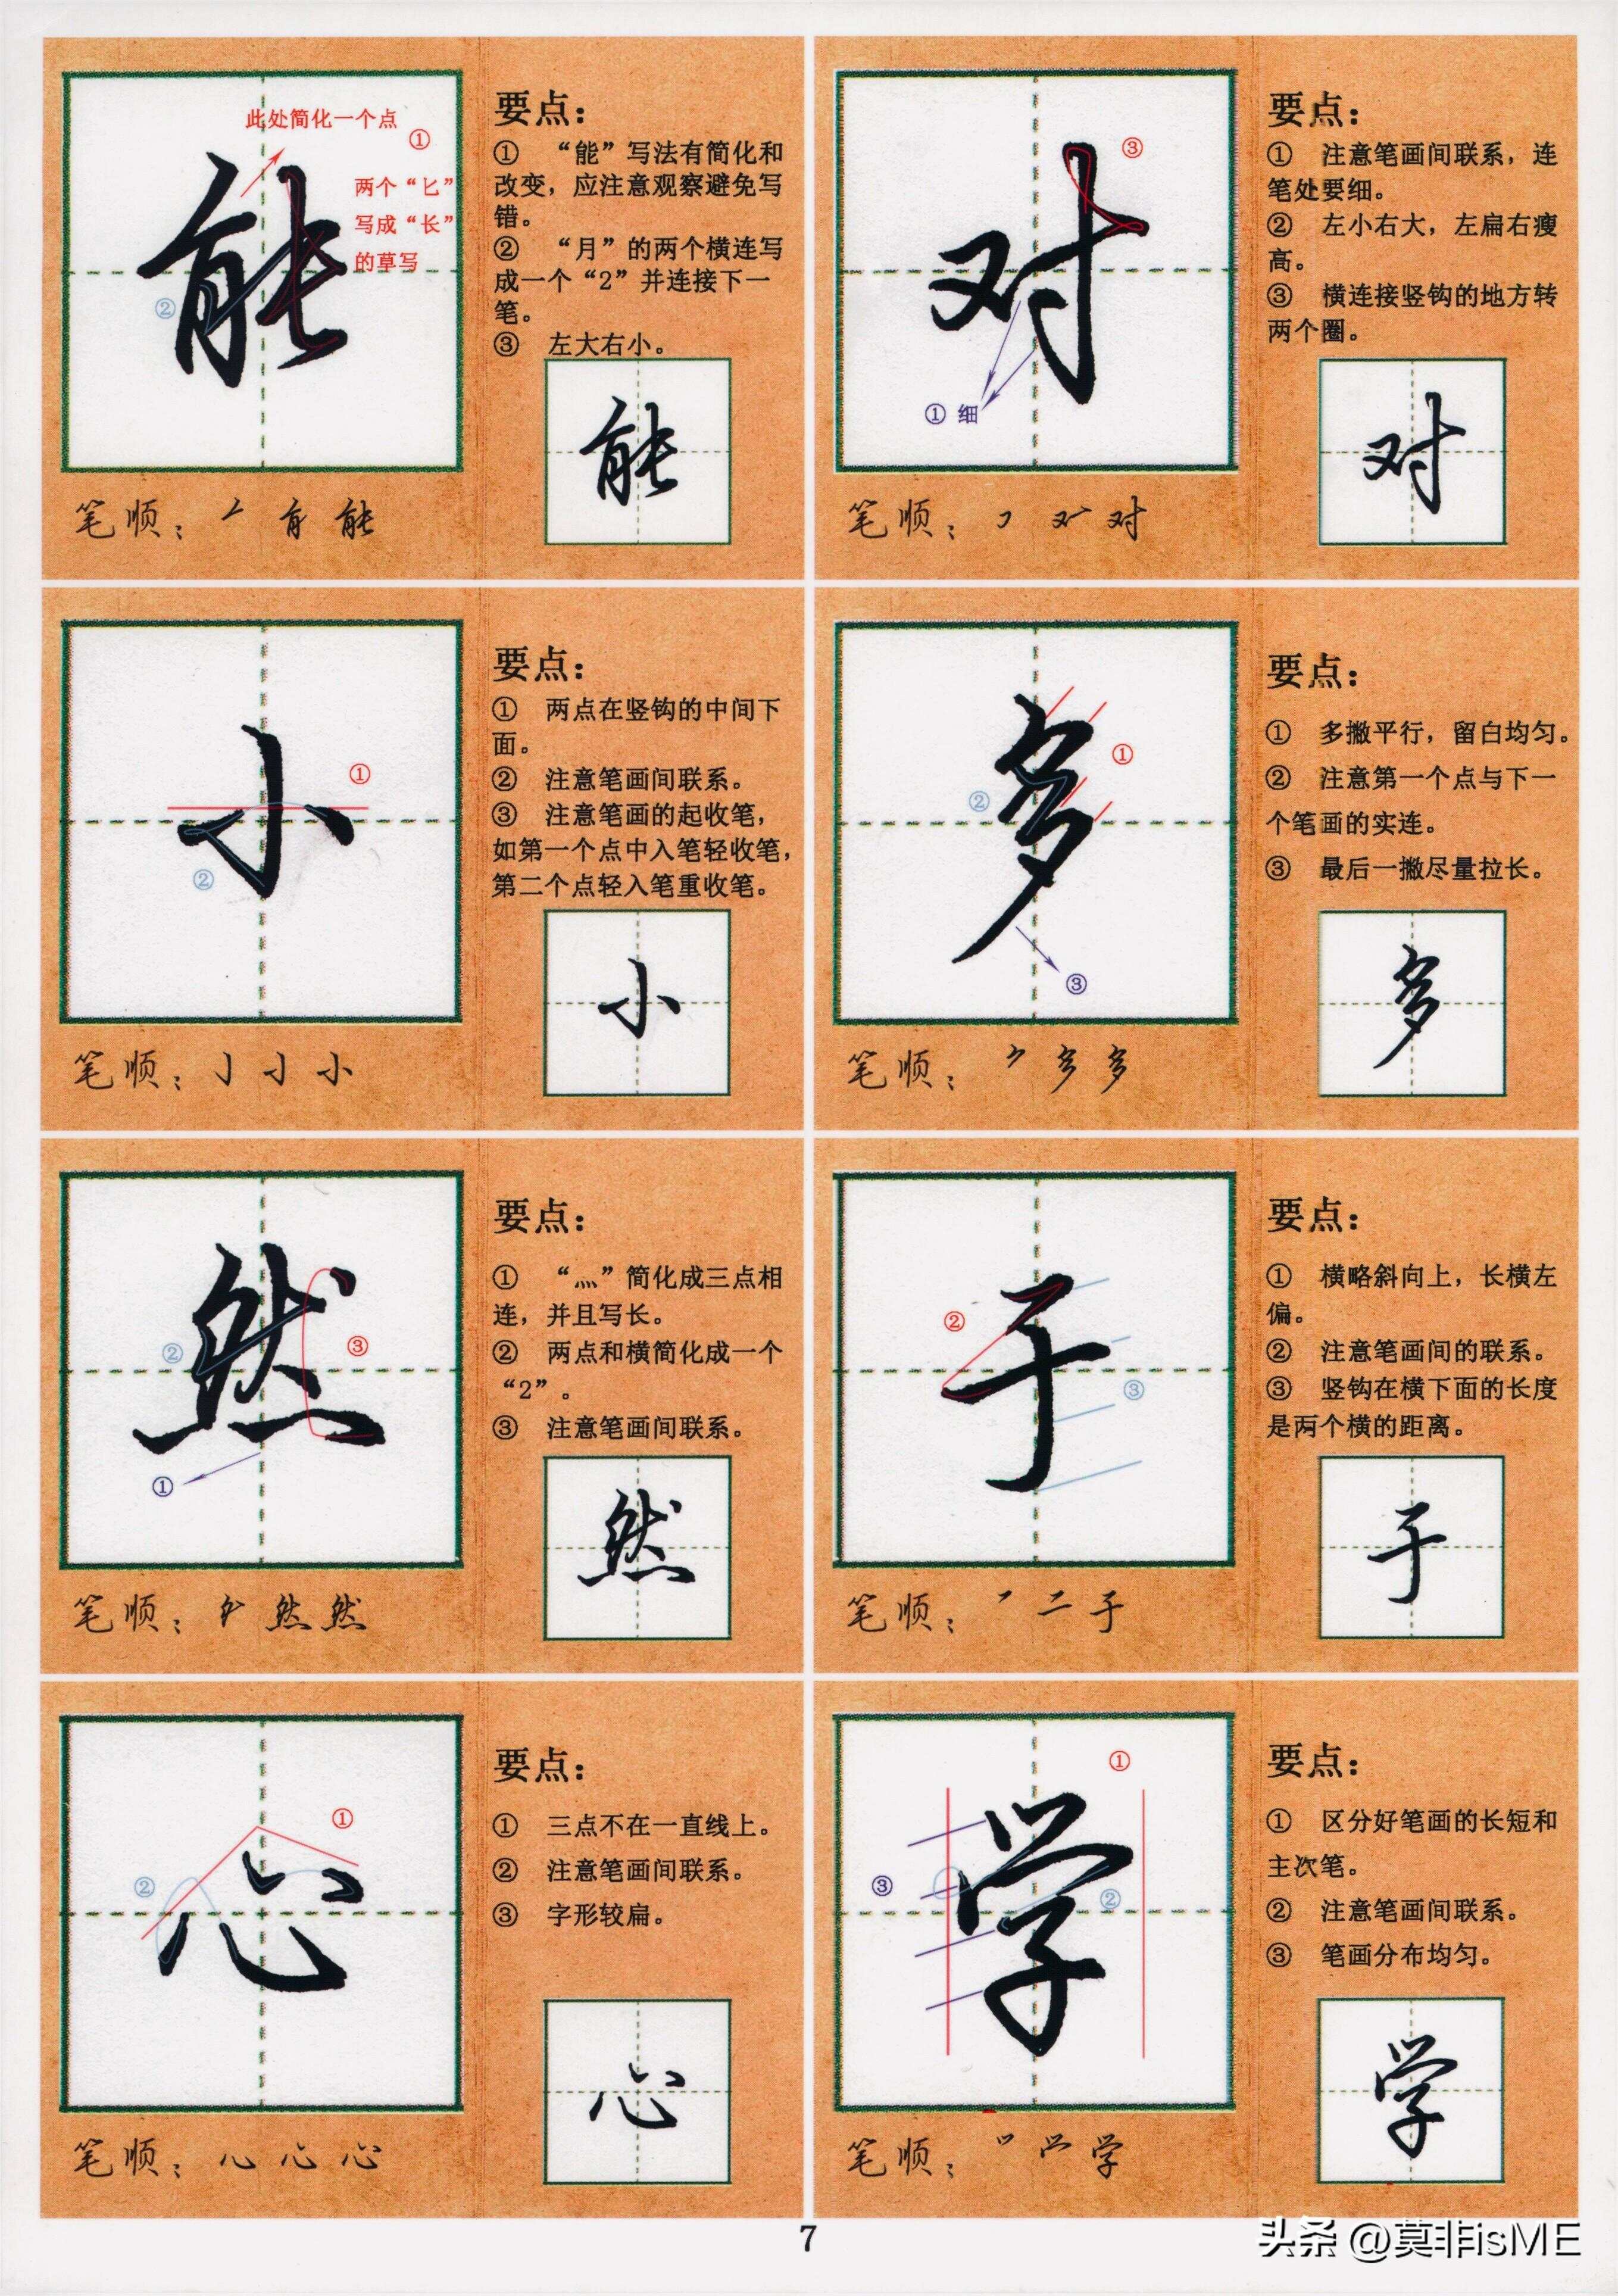 此处简化一个点
①
两个“匕”
写成“长”
的草写
②
能
要点：
① “能”写法有简化和
改变，应注意观察避免写
错。
② “月”的两个横连写
成一个“2”并连接下一
笔。
③ 左大右小。
能
笔顺：
能
③
对
① 细
要点：
① 注意笔画间联系，连
笔处要细。
② 左小右大，左扁右瘦
高。
③ 横连接竖钩的地方转
两个圈。
对
笔顺：
对
①
小
②
要点：
① 两点在竖钩的中间下
面。
② 注意笔画间联系。
③ 注意笔画的起收笔，
如第一个点中入笔轻收笔，
第二个点轻入笔重收笔。
小
笔顺：亅 小
①
②
多
③
要点：
① 多撇平行，留白均匀。
② 注意第一个点与下一
个笔画的实连。
③ 最后一撇尽量拉长。
多
笔顺：多 多
②
③
然
①
要点：
① “灬”简化成三点相
连，并且写长。
② 两点和横简化成一个
“2”。
③ 注意笔画间联系。
然
笔顺：然 然
②
于
③
要点：
① 横略斜向上，长横左
偏。
② 注意笔画间的联系。
③ 竖钩在横下面的长度
是两个横的距离。
于
笔顺：二 于
①
②
心
要点：
① 三点不在一直线上。
② 注意笔画间联系。
③ 字形较扁。
心
笔顺：心
①
③
②
学
要点：
① 区分好笔画的长短和
主次笔。
② 注意笔画间联系。
③ 笔画分布均匀。
学
笔顺：学
7
头条 @莫非isME